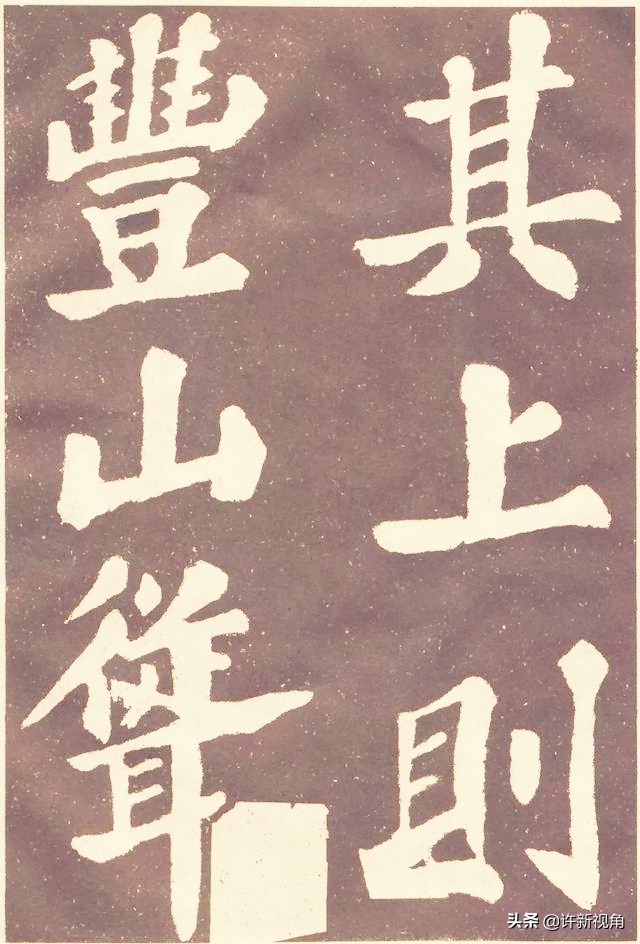 其上則
豐山聳
头条 @许新视角